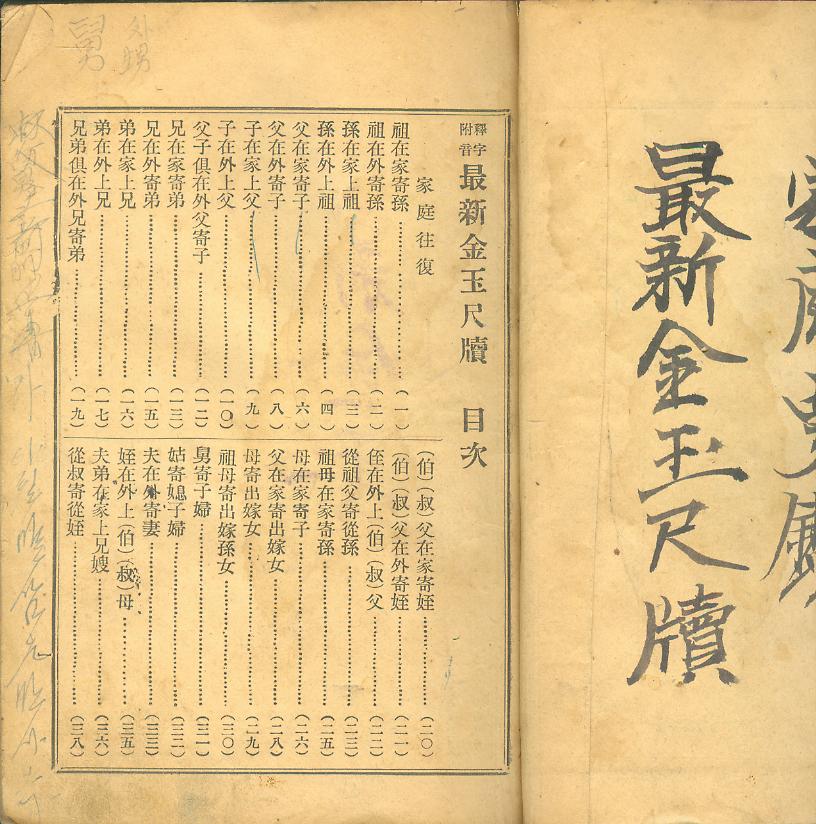 最新金玉尺牘
舅
外甥
釋字
附音
最新金玉尺牘 目次
家庭往復
祖在家寄孫(一)
祖在外寄孫(二)
孫在家上祖(三)
孫在外上祖(四)
父在家寄子(六)
父在外寄子(八)
子在家上父(九)
子在外上父(一〇)
父子俱在外父寄子(一二)
兄在家寄弟(一三)
兄在外寄弟(一五)
弟在家上兄(一六)
弟在外上兄(一七)
兄弟俱在外兄寄弟(一九)
(伯)(叔)父在家寄姪(二〇)
(伯)(叔)父在外寄姪(二一)
侄在外上(伯)(叔)父(二二)
從祖父寄從孫(二三)
祖母在家寄孫(二五)
母在家寄子(二六)
父在家寄出嫁女(二八)
母寄出嫁女(二九)
祖母寄出嫁孫女(三〇)
舅寄子婦(三一)
姑寄媳子婦(三二)
夫在外寄妻(三三)
姪在外上(伯)(叔)母(三五)
夫弟在家上兄嫂(三六)
從叔寄從姪(三八)